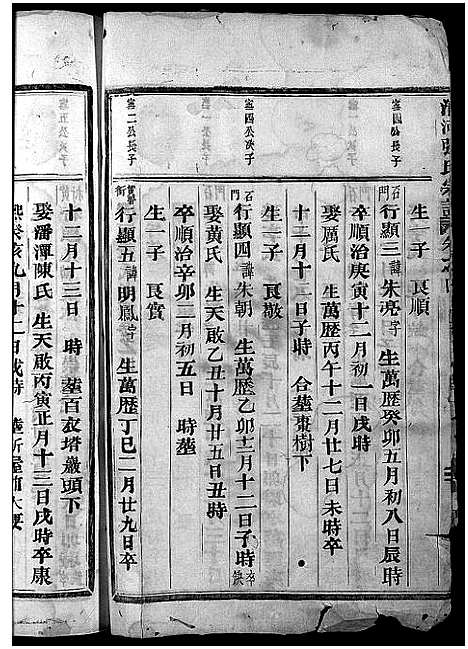 生一子 良順
寔四公長子
石門
行顯三 諱朱亮 字 生萬歷癸卯五月初八日辰時
卒順治庚寅十二月初一日戌時
娶厲氏 生萬歷丙午十二月廿七日未時卒
十二月十二日子時 合塟棗樹下
生一子 良敬
寔四公次子
石門
行顯四 諱朱朝 生萬歷乙卯十二月十二日子時 卒缺
娶黃氏 生天啟乙丑十月廿五日丑時
卒順治辛卯二月初五日 時塟
生一子 良賞
寔二公長子
行顯五 諱明鳳 生萬歷丁巳二月廿九日卒
十二月十三日 時 塟百衣塔巖頭下
娶潘潭陳氏 生天啟丙寅正月十三日戌時卒康
熙癸亥九月十二日戌時
寔五公次子